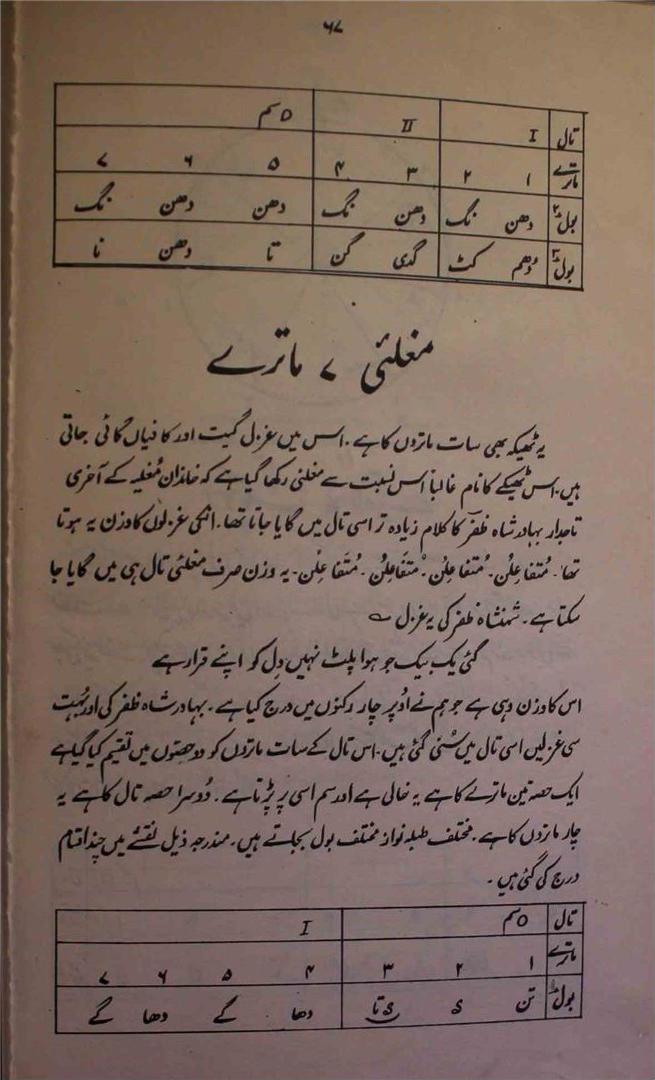 ۶۷
تال I II O سم
ماترے ۱ ۲ ۳ ۴ ۵ ۶ ۷
بول ۲ دھن نگ دھن نگ دھن دھن نگ
بول ۳ دُھم کٹ گدی گن تا دھن نا
مغلئی ۷ ماترے
یہ ٹھیکہ بھی سات ماتروں کا ہے۔ اس میں غزل گیت اور کافیاں گائی جاتی
ہیں۔ اس ٹھیکے کا نام غالباً اس نسبت سے مغلئی رکھا گیا ہے کہ خاندان مُغلیہ کے آخری
تاجدار بہادر شاہ ظفر کا کلام زیادہ تر اسی تال میں گایا جاتا تھا۔ انکی غزلوں کا وزن یہ ہوتا
تھا۔ مُتفاعِلُن۔ مُتفاعِلُن۔ مُتَفَاعِلُن۔ مُتَفَاعِلُن۔ یہ وزن صرف مغلئی تال ہی میں گایا جا
سکتا ہے۔ شہنشاہ ظفر کی یہ غزل ؎
گئی یک بیک جو ہوا پلٹ نہیں دِل کو اپنے قرار ہے
اس کا وزن وہی ہے جو ہم نے اُوپر چار رکنوں میں درج کیا ہے۔ بہادر شاہ ظفر کی اور بہت
سی غزلیں اسی تال میں سُنی گئی ہیں۔ اس تال کے سات ماتروں کو دو حصّوں میں تقیم کیا گیا ہے
ایک حصہ تین ماترے کا ہے یہ خالی ہے اور سم اسی پر پڑتا ہے۔ دُوسرا حصہ تال کا ہے یہ
چار ماتروں کا ہے۔ مختلف طبلہ نواز مختلف بول بجاتے ہیں۔ مندرجہ ذیل نقشے میں چند اقسام
درج کی گئی ہیں۔
تال O سم I
ماترے ۱ ۲ ۳ ۴ ۵ ۶ ۷
بول تن ک ک تا دھا گے دھا گے